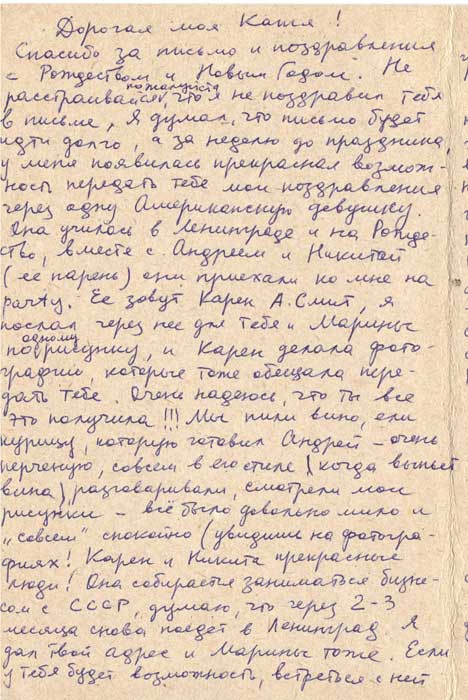 Дорогая моя Катя!
Спасибо за письмо и поздравления
с Рождеством и Новым Годом. Не
расстраивайся, пожалуйста что я не поздравил тебя
в письме, я думал, что письмо будет
идти долго, а за неделю до праздника,
у меня появилась прекрасная возмож-
ность передать тебе мои поздравления
через одну Американскую девушку.
Она училась в Ленинграде и на Рожде-
ство, вместе с Андреем и Никитой
(её парень) они приехали ко мне на
party. Её зовут Карен А. Смит, я
послал через нее для тебя и Марины
по одному рисунку, и Карен делала фото-
графии которые тоже обещала пере-
дать тебе. Очень надеюсь, что ты все
это получила!!! Мы пили вино, ели
курицу, которую готовил Андрей – очень
перченую, совсем в его стиле (когда выпьет
вина), разговаривали, смотрели мои
рисунки – всё было довольно мило и
„совсем" спокойно (увидишь на фотогра-
фиях! Карен и Никита прекрасные
люди! Она собирается заниматься бизне-
сом с СССР, думаю, что через 2-3
месяца снова поедет в Ленинград. Я
дал твой адрес и Марины тоже. Если
у тебя будет возможность, встреться с ней